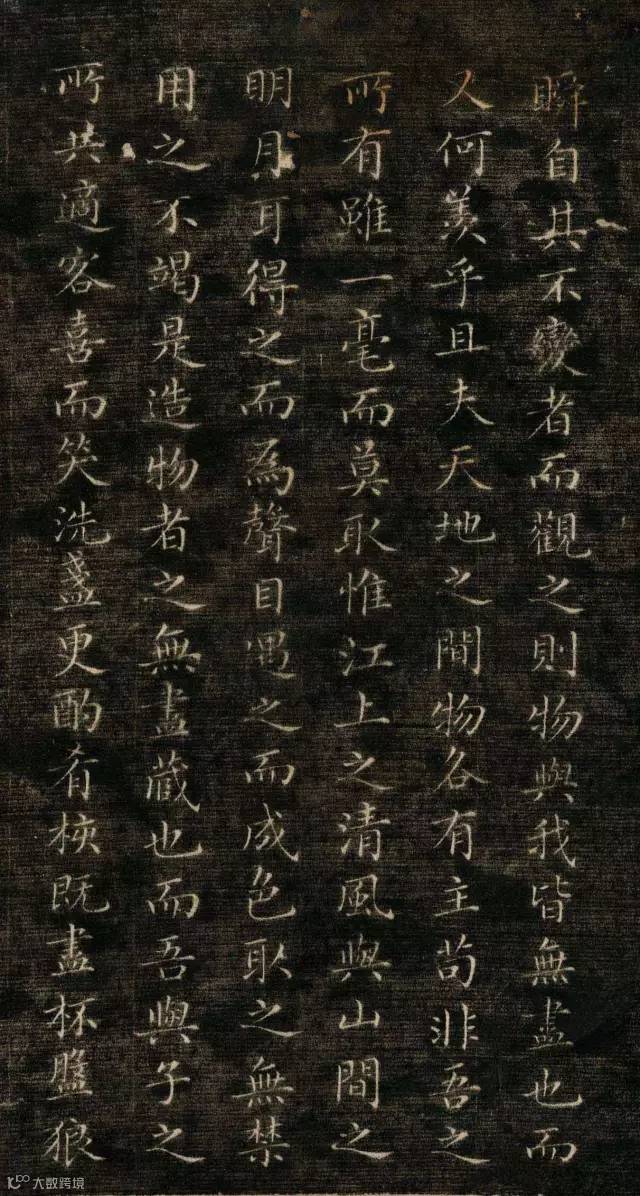 瞬自其不變者而觀之則物與我皆無盡也而
又何羨乎且夫天地之間物各有主苟非吾之
所有雖一毫而莫取惟江上之清風與山間之
明月耳得之而為聲目遇之而成色取之無禁
用之不竭是造物者之無盡藏也而吾與子之
所共適客喜而笑洗盞更酌肴核既盡杯盤狼
大数跨境